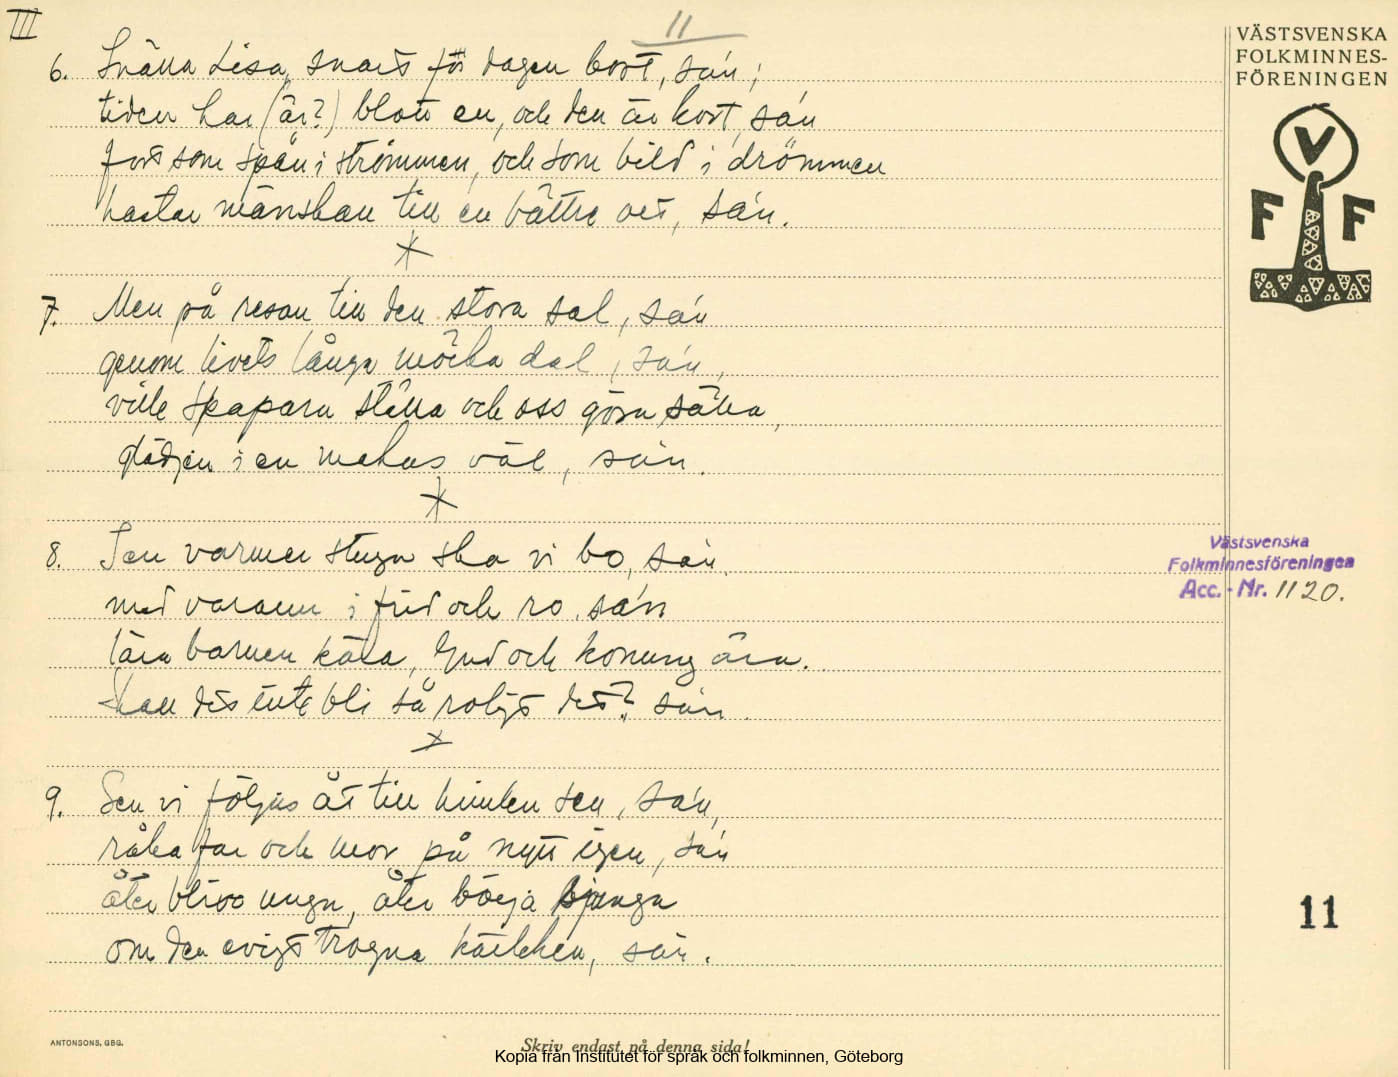 III
11
VÄSTSVENSKA
FOLKMINNES-
FÖRENINGEN
V
F F
6. Snälla Lisa, snart för dagen bort, sán;
tiden har (är?) blott en, och den är kort, sán
fort som spån i strömmen, och som bild i drömmen
hastar mänskan till en bättre ort, sán.
7. Men på resan till den stora sal, sán
genom livets långa mörka dal, sán,
ville skaparn ställa och oss göra sälla,
glädjen i en makas val, sán.
8. I en varmer stuga ska vi bo, sán
med varann i frid och ro, sán
lära barnen kära, Gud och konung ära.
Kan det inte bli så roligt det? sán.
9. Sen vi följas åt till himlen sen, sán,
råka far och mor på nytt igen, sán
åter bliva unga, åter börja sjunga
om den evigt trogna kärleken, sán.
Västsvenska
Folkminnesföreningen
Acc.-Nr. 1120.
11
ANTONSONS, GBG.
Skriv endast på denna sida!
Kopia från Institutet för språk och folkminnen, Göteborg